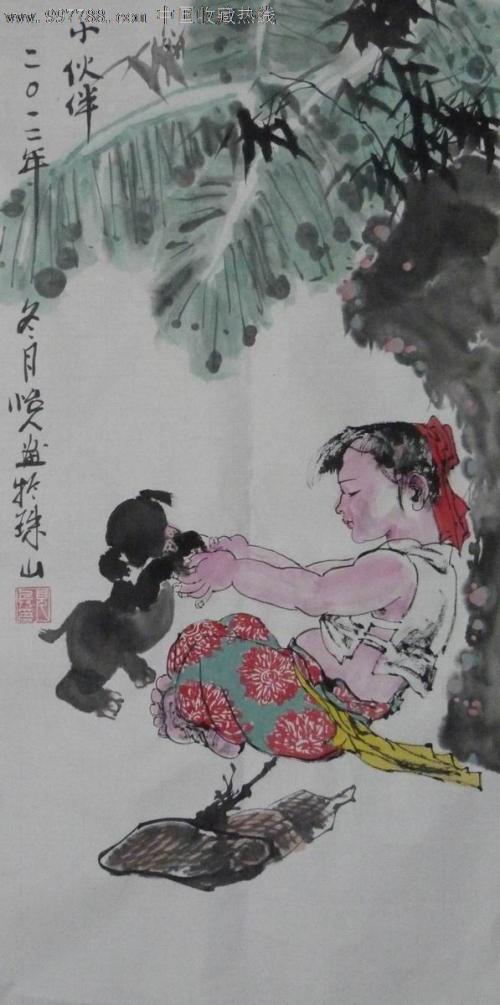 www.997788.com 中国收藏热线
小伙伴
二〇一二年
冬月悦画於珠山